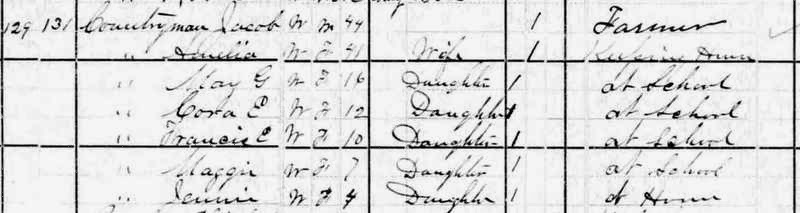 129 131 Countryman Jacob W M 44 1 Farmer
" Amelia W F 41 Wife 1 Keeping House
" May G W F 16 Daughter 1 at School
" Cora E W F 12 Daughter 1 at School
" Francis E W F 10 Daughter 1 at School
" Maggie W F 7 Daughter 1 at School
" Jennie W F 4 Daughter 1 at Home